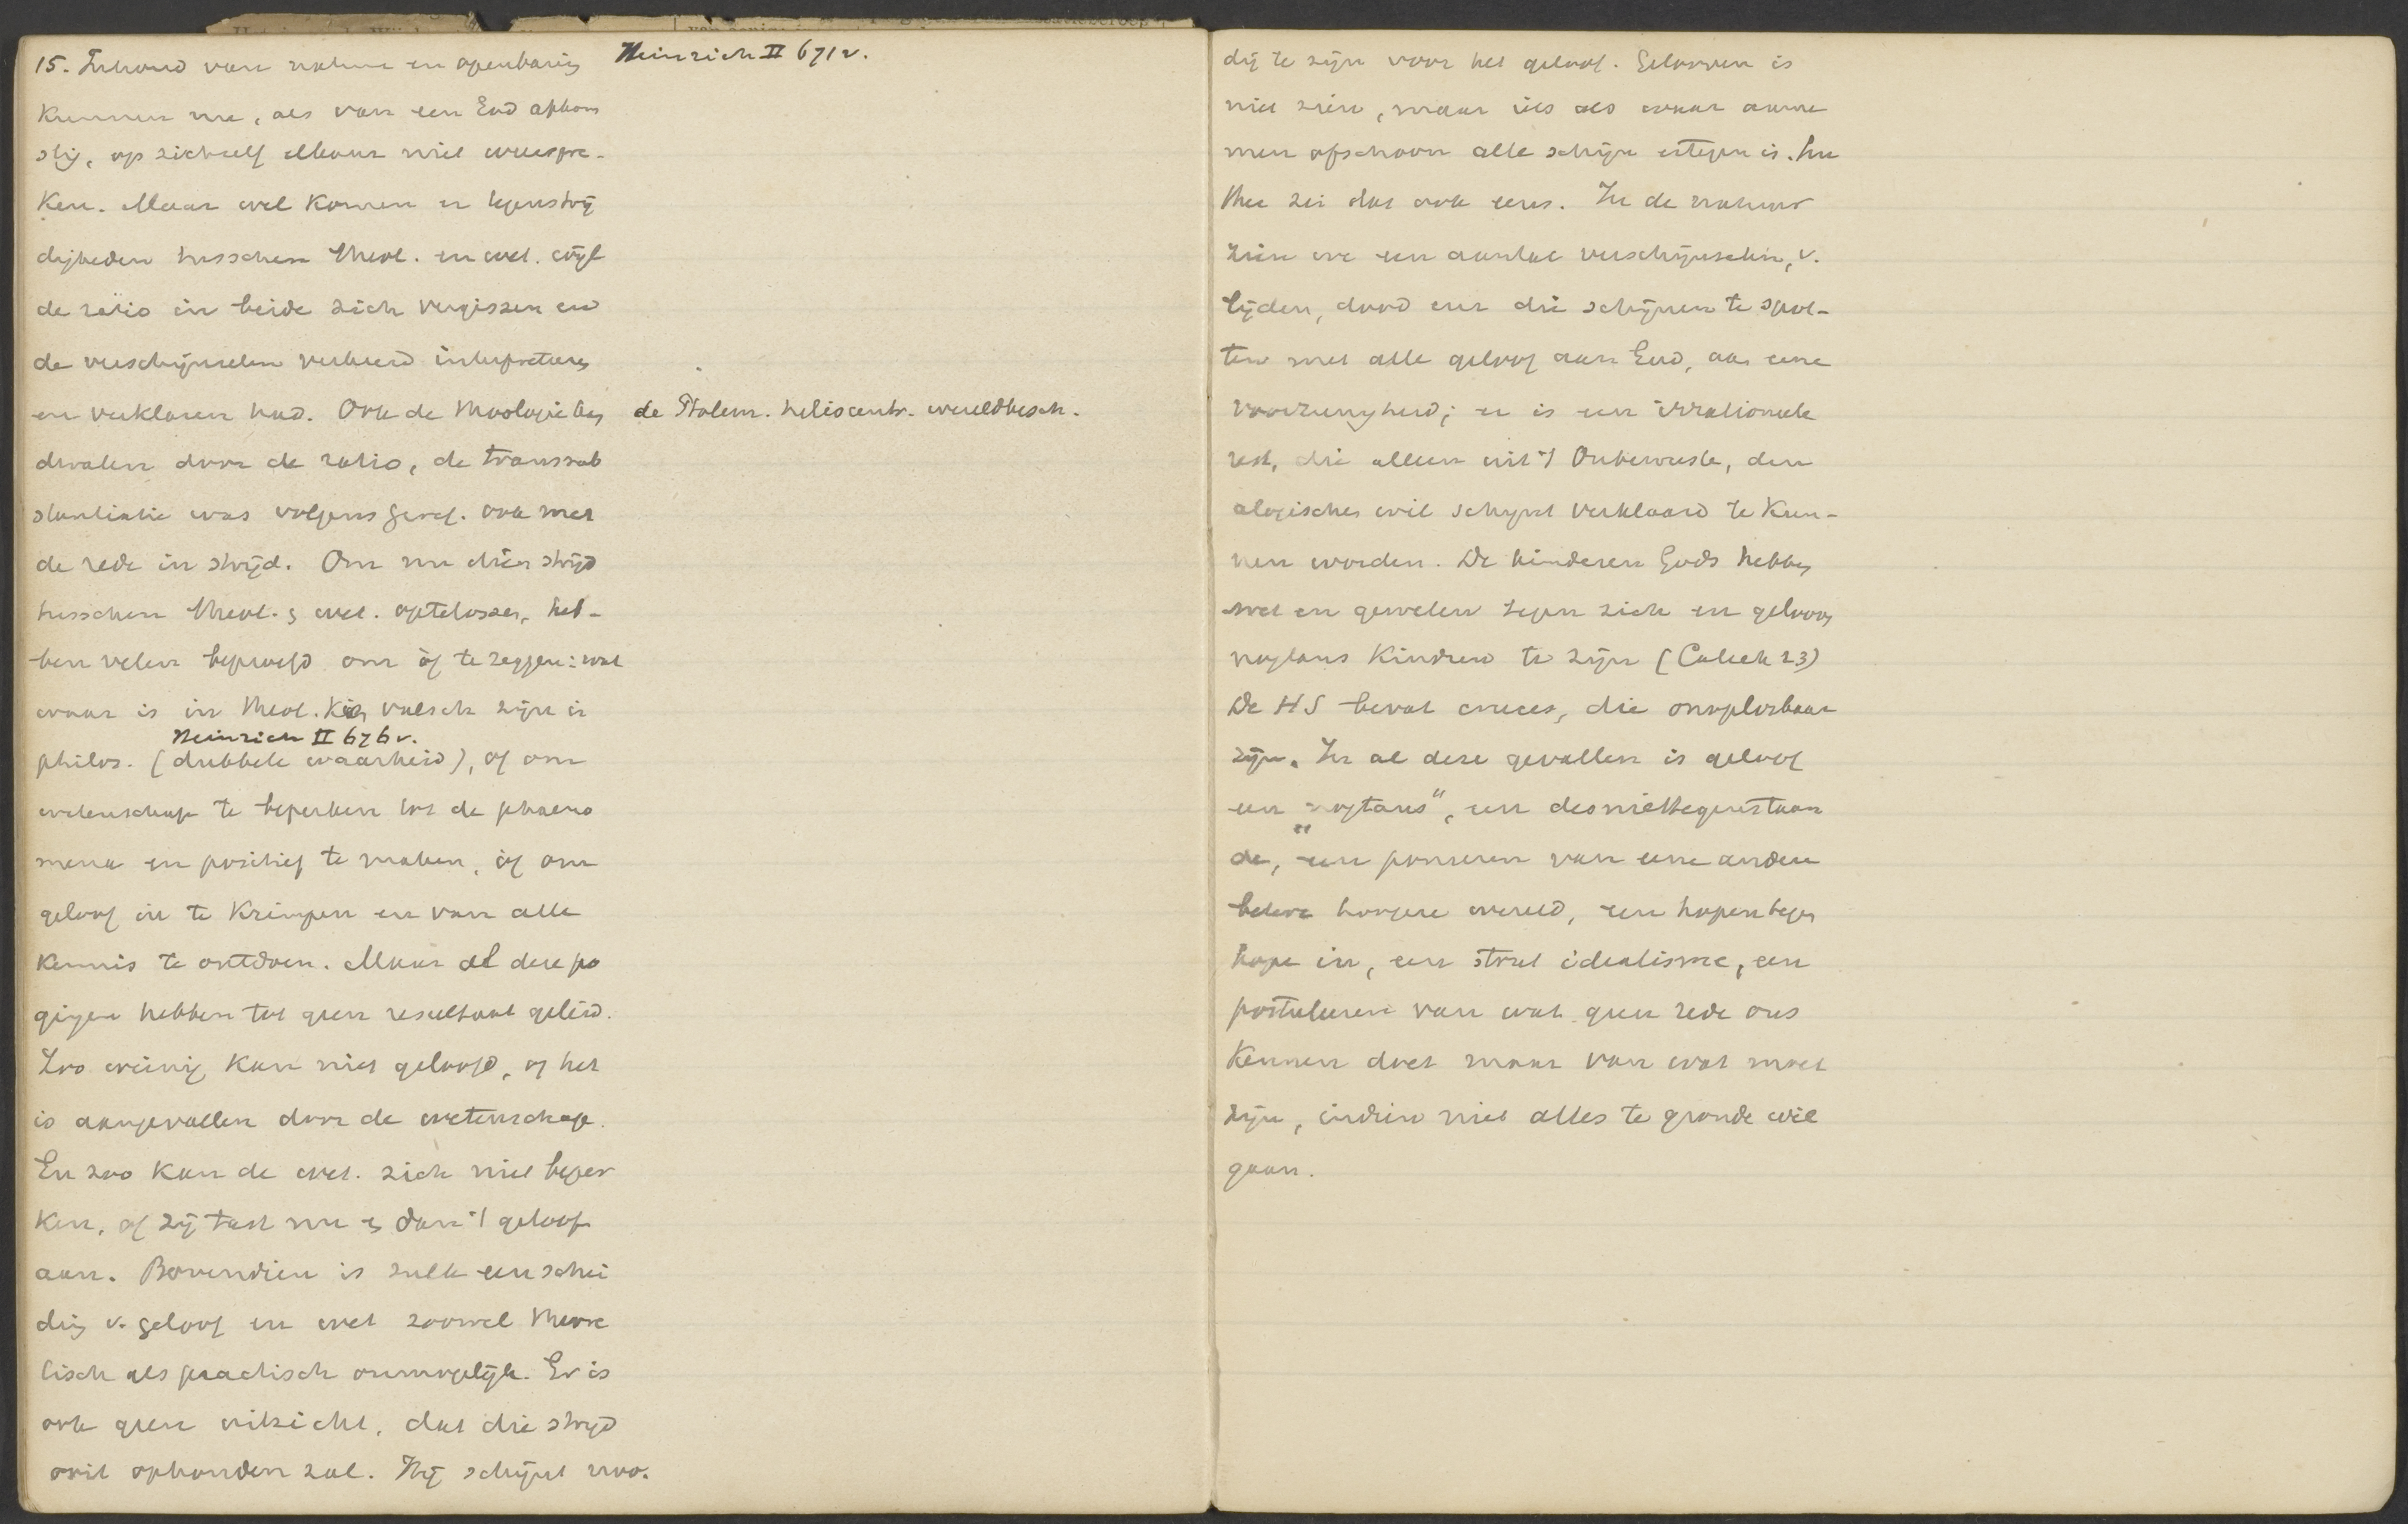 15. Inhoud van natuur en openbaring Heinrich II 671v.
kunnen nu, als van een God afkom
stig, op zichzelf elkaar niet weerspre-
ken. Maar wel komen er tegenstrij
digheden tusschen theol. en wet. wijl
de ratio in beide zich vergissen en
de verschijnselen verkeerd interpreteeren
en verklaren kad. Ook de theologie kan de Ptolem. heliocentr. wereldbesch.
dwalen door de ratio, de transsub
stantiatie was volgens Geref. ook met
de rede in strijd. Om nu dien strijd
tusschen theol. & wet. optelossen, heb-
ben velen beproefd om òf te zeggen: wat
waar is in theol. kan valsch zijn in
Heinrich II 676v.
philos. (dubbele waarheid), of om
wetenschap te beperken tot de phaeno
mena en positief te maken, òf om
geloof in te krimpen en van alle
kennis te ontdoen. Maar al deze po
gingen hebben tot geen resultaat geleid.
Zoo weinig kan niet geloofd, of het
is aangevallen door de wetenschap.
En zoo kan de wet. zich niet beper
ken, of zij tast nu en dan 't geloof
aan. Bovendien is zulk een schei
ding v. geloof en wet zoowel theore
tisch als practisch onmogelijk. Er is
ook geen uitzicht, dat die strijd
ooit ophouden zal. Hij schijnt noo.
dig te zijn voor het geloof. Gelooven is
niet zien, maar iets als waar aanne
men ofschoon alle schijn ertegen is. Lu
ther zei dat ook eens. In de natuur
zien we een aantal verschijnselen, v.
lijden, dood enz die schijnen te spot-
ten met alle geloof aan God, aan eene
voorzienigheid; er is een irrationeele
rest, die alleen uit 't Onbewuste, den
alogischen wil schijnt verklaard te kun-
nen worden. De kinderen Gods hebben
wet en geweten tegen zich en gelooven
nogtans kinderen te zijn (Catech 23)
De HS bevat cruces, die onoplosbaar
zijn. In al deze gevallen is geloof
een „nogtans", een desniettegenstaan
de, een poneeren van eene andere
betere hoogere wereld, een hopen tegen
hope in, een stout idealisme, een
postuleeren van wat geen rede ons
kennen doet maar van wat moet
zijn, indien niet alles te gronde wil
gaan.